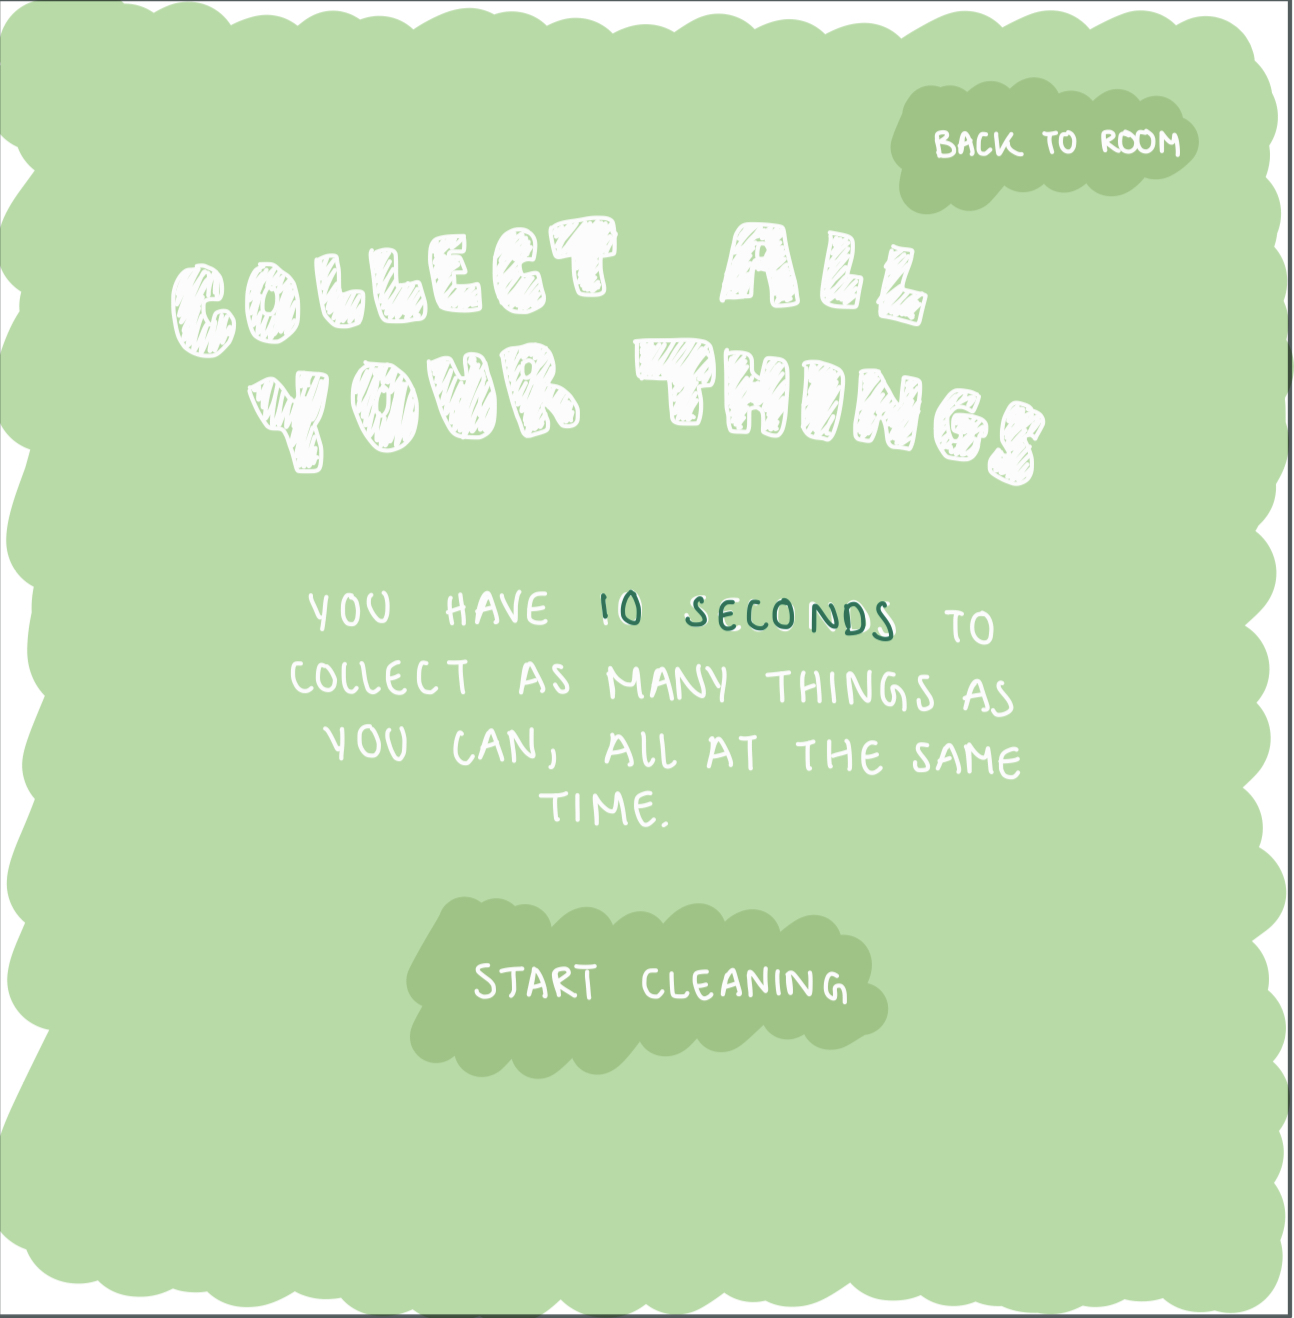 BACK TO ROOM
COLLECT ALL
YOUR THINGS
YOU HAVE 10 SECONDS TO
COLLECT AS MANY THINGS AS
YOU CAN, ALL AT THE SAME
TIME.
START CLEANING